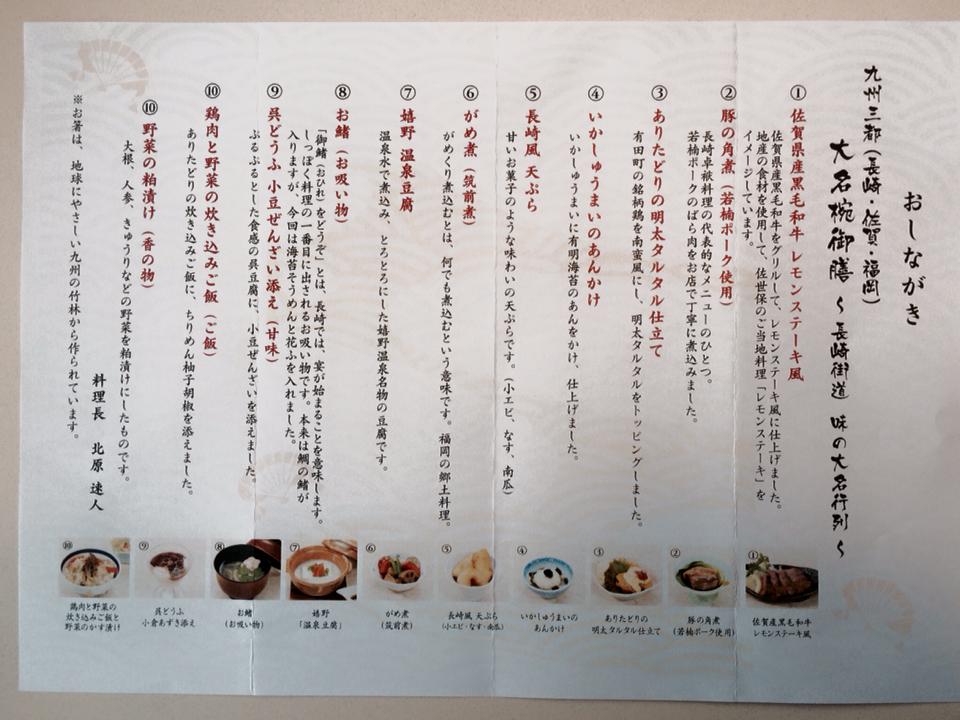 おしながき
九州三都(長崎・佐賀・福岡)
大名椀御膳 ~長崎街道 味の大名行列~
① 佐賀県産黒毛和牛 レモンステーキ風
佐賀県産黒毛和牛をグリルして、レモンステーキ風に仕上げました。
地産の食材を使用して、佐世保のご当地料理「レモンステーキ」を
イメージしています。
② 豚の角煮(若楠ポーク使用)
長崎卓袱料理の代表的なメニューのひとつ。
若楠ポークのばら肉をお店で丁寧に煮込みました。
③ ありたどりの明太タルタル仕立て
有田町の銘柄鶏を南蛮風にし、明太タルタルをトッピングしました。
④ いかしゅうまいのあんかけ
いかしゅうまいに有明海苔のあんをかけ、仕上げました。
⑤ 長崎風 天ぷら
甘いお菓子のような味わいの天ぷらです。(小エビ、なす、南瓜)
⑥ がめ煮(筑前煮)
がめくり煮込むとは、何でも煮込むという意味です。福岡の郷土料理。
⑦ 嬉野 温泉豆腐
温泉水で煮込み、とろとろにした嬉野温泉名物の豆腐です。
⑧ お鰭(お吸い物)
「御鰭(おひれ)をどうぞ」とは、長崎では、宴が始まることを意味します。
しっぽく料理の一番目に出されるお吸い物です。本来は鯛の鰭が
入りますが、今回は海苔そうめんと花ふを入れました。
⑨ 呉どうふ 小豆ぜんざい添え(甘味)
ぷるぷるとした食感の呉豆腐に、小豆ぜんざいを添えました。
⑩ 鶏肉と野菜の炊き込みご飯(ご飯)
ありたどりの炊き込みご飯に、ちりめん柚子胡椒を添えました。
⑩ 野菜の粕漬け(香の物)
大根、人参、きゅうりなどの野菜を粕漬けにしたものです。
料理長 北原 速人
※お箸は、地球にやさしい九州の竹林から作られています。
①
佐賀産黒毛和牛
レモンステーキ風
②
豚の角煮
(若楠ポーク使用)
③
ありたどりの
明太タルタル仕立て
④
いかしゅうまいの
あんかけ
⑤
長崎風 天ぷら
(小エビ・なす・南瓜)
⑥
がめ煮
(筑前煮)
⑦
嬉野
「温泉豆腐」
⑧
お鰭
(お吸い物)
⑨
呉どうふ
小倉あずき添え
⑩
鶏肉と野菜の
炊き込みご飯と
野菜のかす漬け